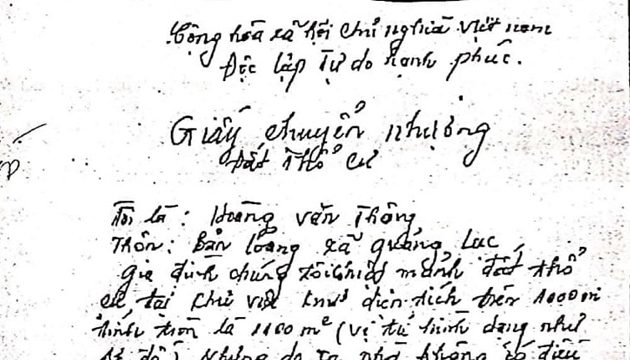 Cộng hòa xã hội chủ nghĩa việt nam
Độc lập Tự do hạnh phúc.
Giấy chuyển nhượng
Đất Thổ cư
Tôi là : Hoàng văn Thông
Thôn : Bản Loong xã quảng Lạc
gia đình chúng tôi có mảnh đất thổ
cư tại khu vực diện tích trên 1000 m
tính tròn là 1100 m² (vị trí hình dạng như
nhưng do không có điều